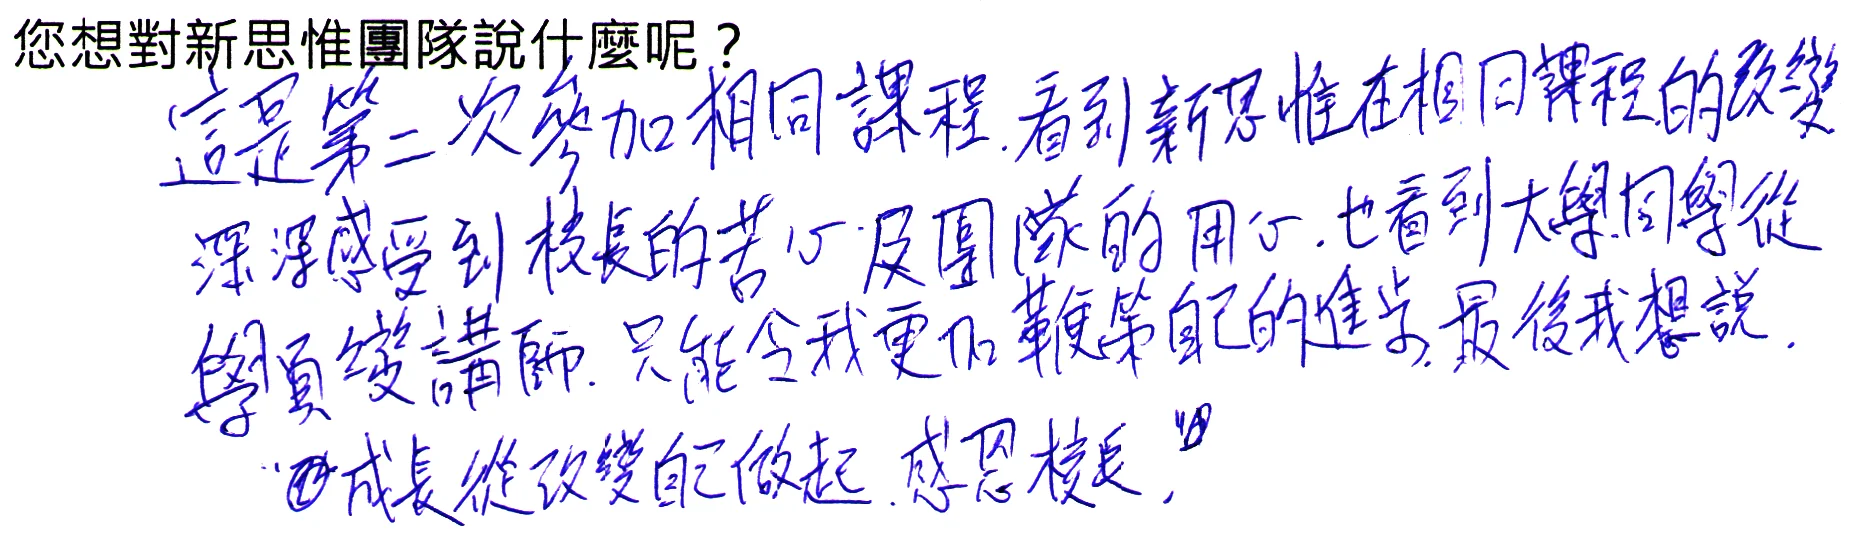 您想對新思惟團隊說什麼呢？
這是第二次參加相同課程.看到新思惟在相同課程的改變
深深感受到校長的苦心.及團隊的用心.也看到大學同學從
學員變講師.只能令我更加鞭策自己的進步.最後我想說.
"成長從改變自己做起.感恩校長."